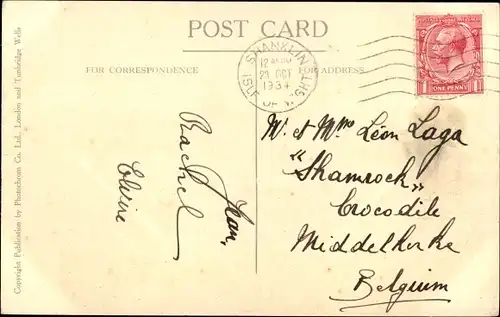 POST CARD
FOR CORRESPONDENCE
FOR ADDRESS
SHANKLIN
21 OCT
1934
ISLE OF WIGHT
ONE PENNY
Jean,
Rachel
Claire
M. & Mme Léon Laga
"Shamrock"
Crocodile
Middelkerke
Belgium
Copyright Publication by Photochrom Co. Ltd., London and Tunbridge Wells